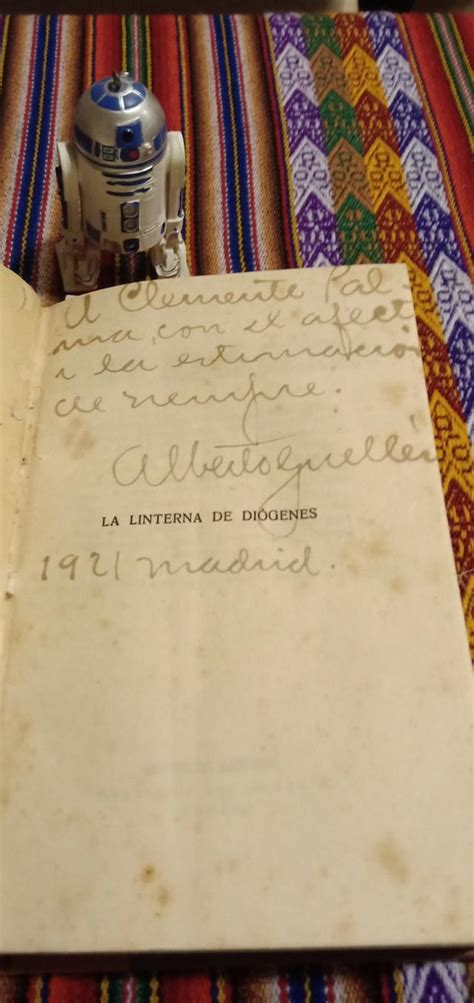 A Clemente Pal-
ma, con el afect
i la estimación
de siempre.
Alberto Guillén
LA LINTERNA DE DIÓGENES
1921 madrid.